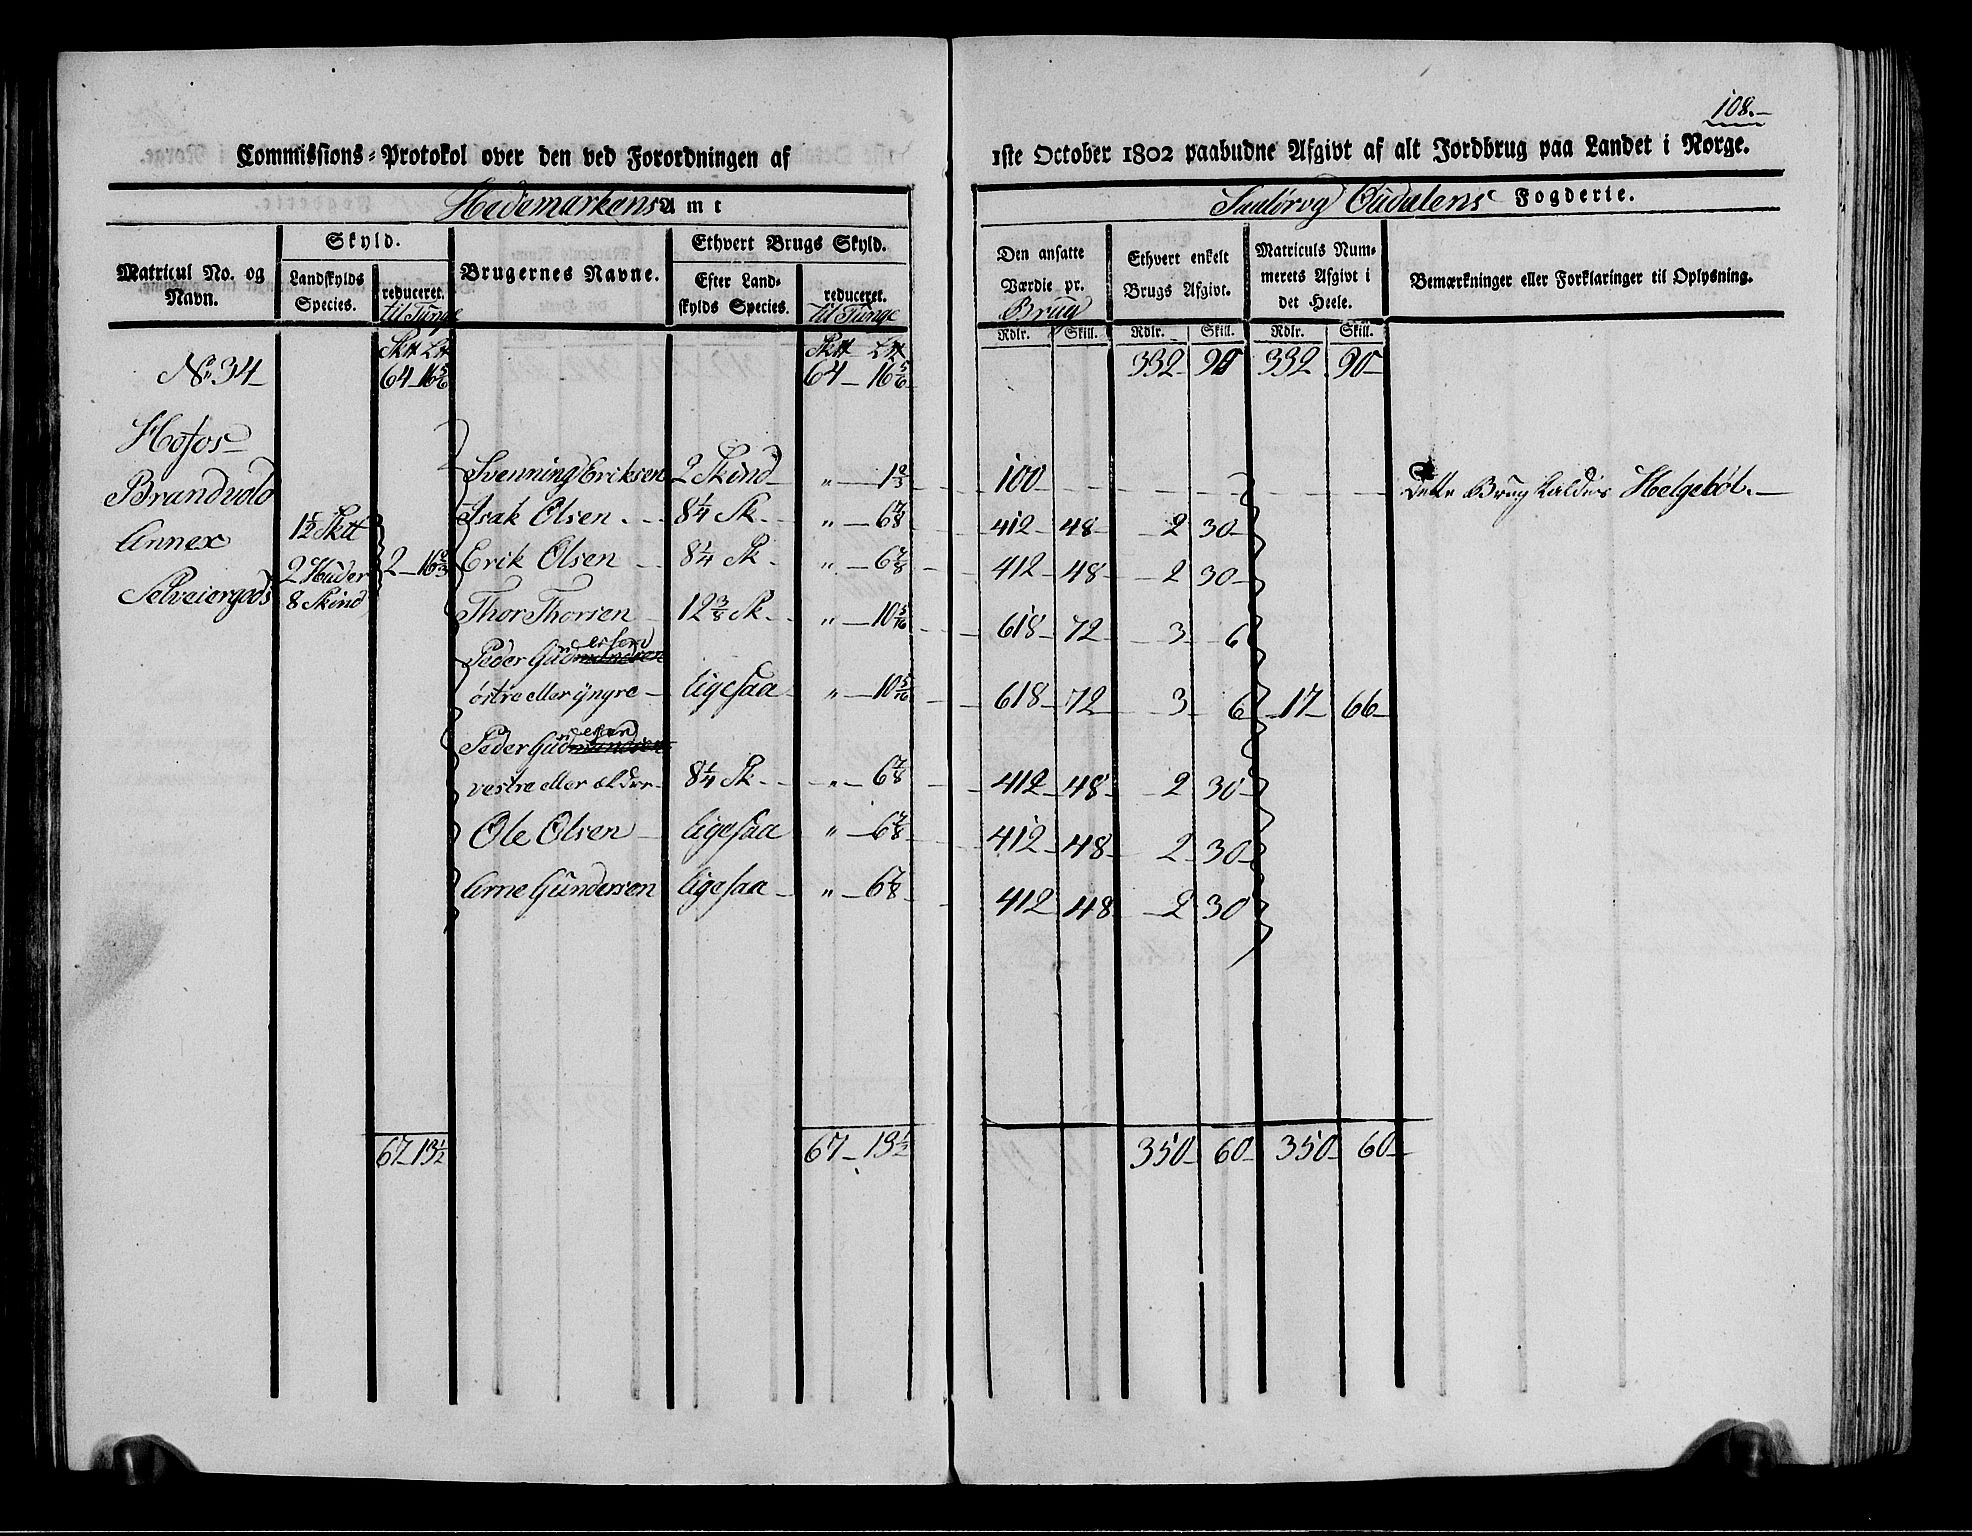 108.
Commissions-Protokol over den ved Forordningen af 1ste October 1802 paabudne Afgivt af alt Jordbrug paa Landet i Norge.
Hedemarkens Amt
Soløer og Oudalens Fogderie.
Matricul No. og Navn. | Skyld. | Brugernes Navne. | Ethvert Brugs Skyld. | Den ansatte Værdie pr. Brug | Ethvert enkelt Brugs Afgivt. | Matriculs Nummerets Afgivt i det Heele. | Bemærkninger eller Forklaringer til Oplysning.
Landskylds Species. | reduceret. til Tunge | Efter Landskylds Species. | reduceret. til Tunge | Rdlr. | Skill. | Rdlr. | Skill. | Rdlr. | Skill.
No. 34 | Sktt Ltt 64 16 5/6 | Sktt Ltt 64 16 5/6 | 332 90 | 332 90
Hofos
Brandvold
Annex
Selveiergods
1 1/2 Sktt
2 Huder
8 Skind
2 16 2/3
Svenning Eriksen | 2 Skind | " 1 2/3 | 100 | Dette Brug kaldes Helgebøl.
Isak Olsen | 8 1/4 Sk. | " 6 7/8 | 412 48 | 2 30
Erik Olsen | 8 1/4 Sk | " 6 7/8 | 412 48 | 2 30
Thor Thorsen | 12 3/8 Sk. | " 10 5/16 | 618 72 | 3 6
Peder Gud
østre eller yngre | ligesaa | " 10 5/16 | 618 72 | 3 6 | 17 66
Peder Gud
vestre eller ældre | 8 1/4 Sk. | " 6 7/8 | 412 48 | 2 30
Ole Olsen | ligesaa | " 6 7/8 | 412 48 | 2 30
Arne Gundersen | ligesaa | " 6 7/8 | 412 48 | 2 30
67 13 1/2 | 67 13 1/2 | 350 60 | 350 60